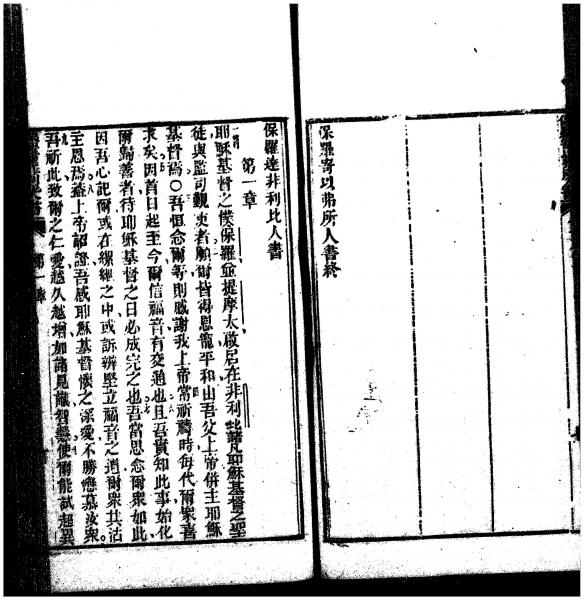 保羅寄以弗所人書終
保羅達非利比人書
第一章
耶穌基督之僕保羅並提摩太啟居在非利比諸凡耶穌基督之聖
徒與監司執事者願爾皆得恩寵平和由吾父上帝併主耶穌
基督焉〇吾恒念爾等則感謝我上帝常祈禱時每代爾眾喜
求矣因首日起至今爾信福音有交通也且吾實知此事始化
爾歸善者待耶穌基督之日必成完之也吾當思念爾眾如此
因吾心記爾或在縲絏之中或訴辨堅立福音之道爾眾共沾
主恩焉蓋上帝詔證吾感耶穌基督懷之深愛不勝戀慕汝眾
吾祈此致爾之仁愛越久越增加諸見識智慧使爾能試起異
第一章